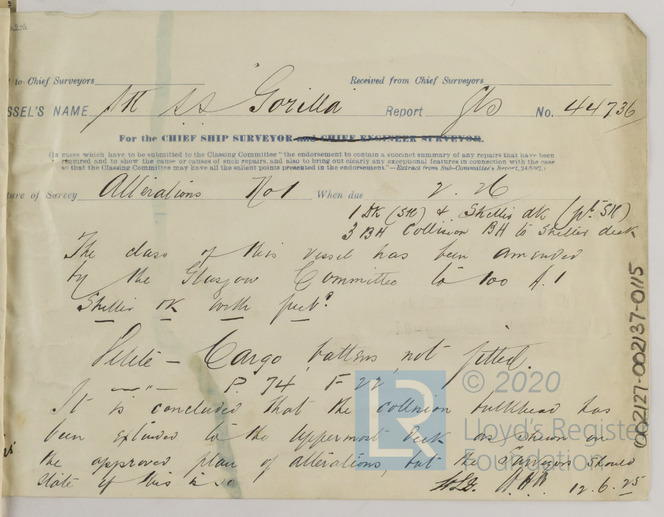 to Chief Surveyors Received from Chief Surveyors
SSEL'S NAME S.S "Gorilla" Report Gls No. 44736
For the CHIEF SHIP SURVEYOR and CHIEF ENGINEER SURVEYOR.
(In cases which have to be submitted to the Classing Committee "the endorsement to contain a succinct summary of any repairs that have been
required and to show the cause or causes of such repairs, and also to bring out clearly any exceptional features in connection with the case
so that the Classing Committee may have all the salient points presented in the endorsement."—Extract from Sub-Committee's Report, 24/6/97.)
ture of Survey Alterations No 1 When due 2.26
1 Dk (Stl) & Shelter dk (pt Stl)
3 BH Collision BH to Shelter deck
The class of this vessel has been amended
by the Glasgow Committee to 100 A.1
Shelter Dk with freebd
Delete — Cargo battens not fitted.
" — " — P 74 F 22
It is concluded that the collision bulkhead has
been extended to the uppermost deck as shewn on
the approved plan of alterations, but the Surveyors should
state if this is so
12.6.25
LR
© 2020
Lloyd's Register
Foundation
002127-002137-0115